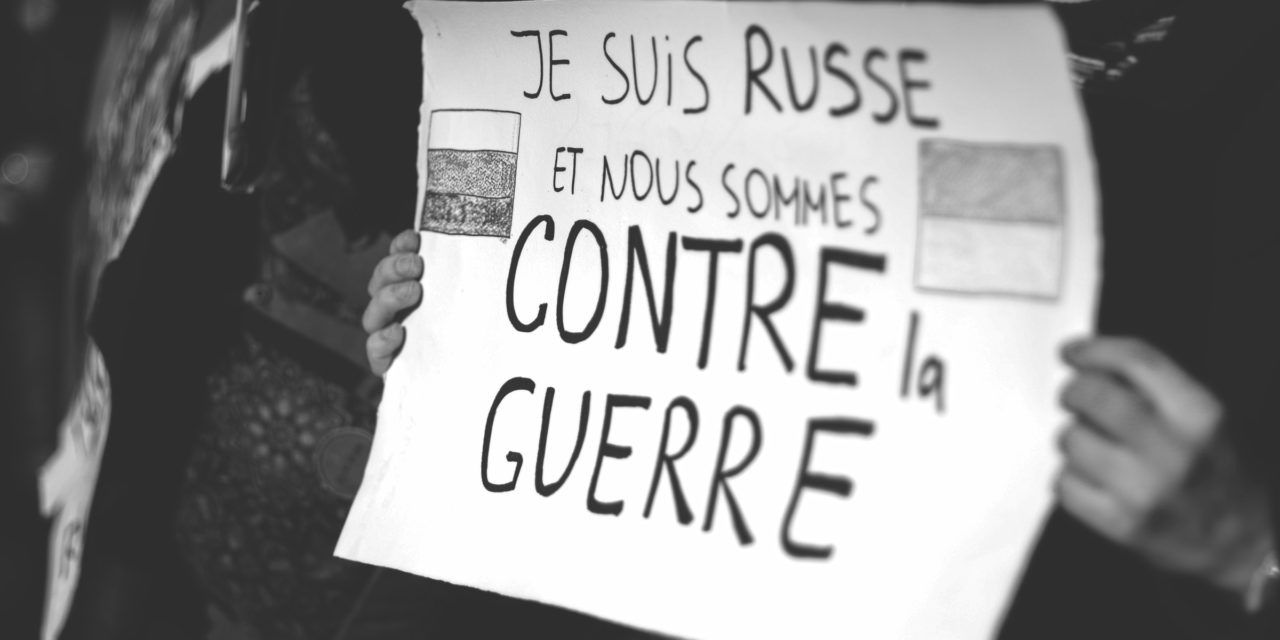 JE SUiS RUSSE
ET NOUS SOMMES
CONTRE la
GUERRE